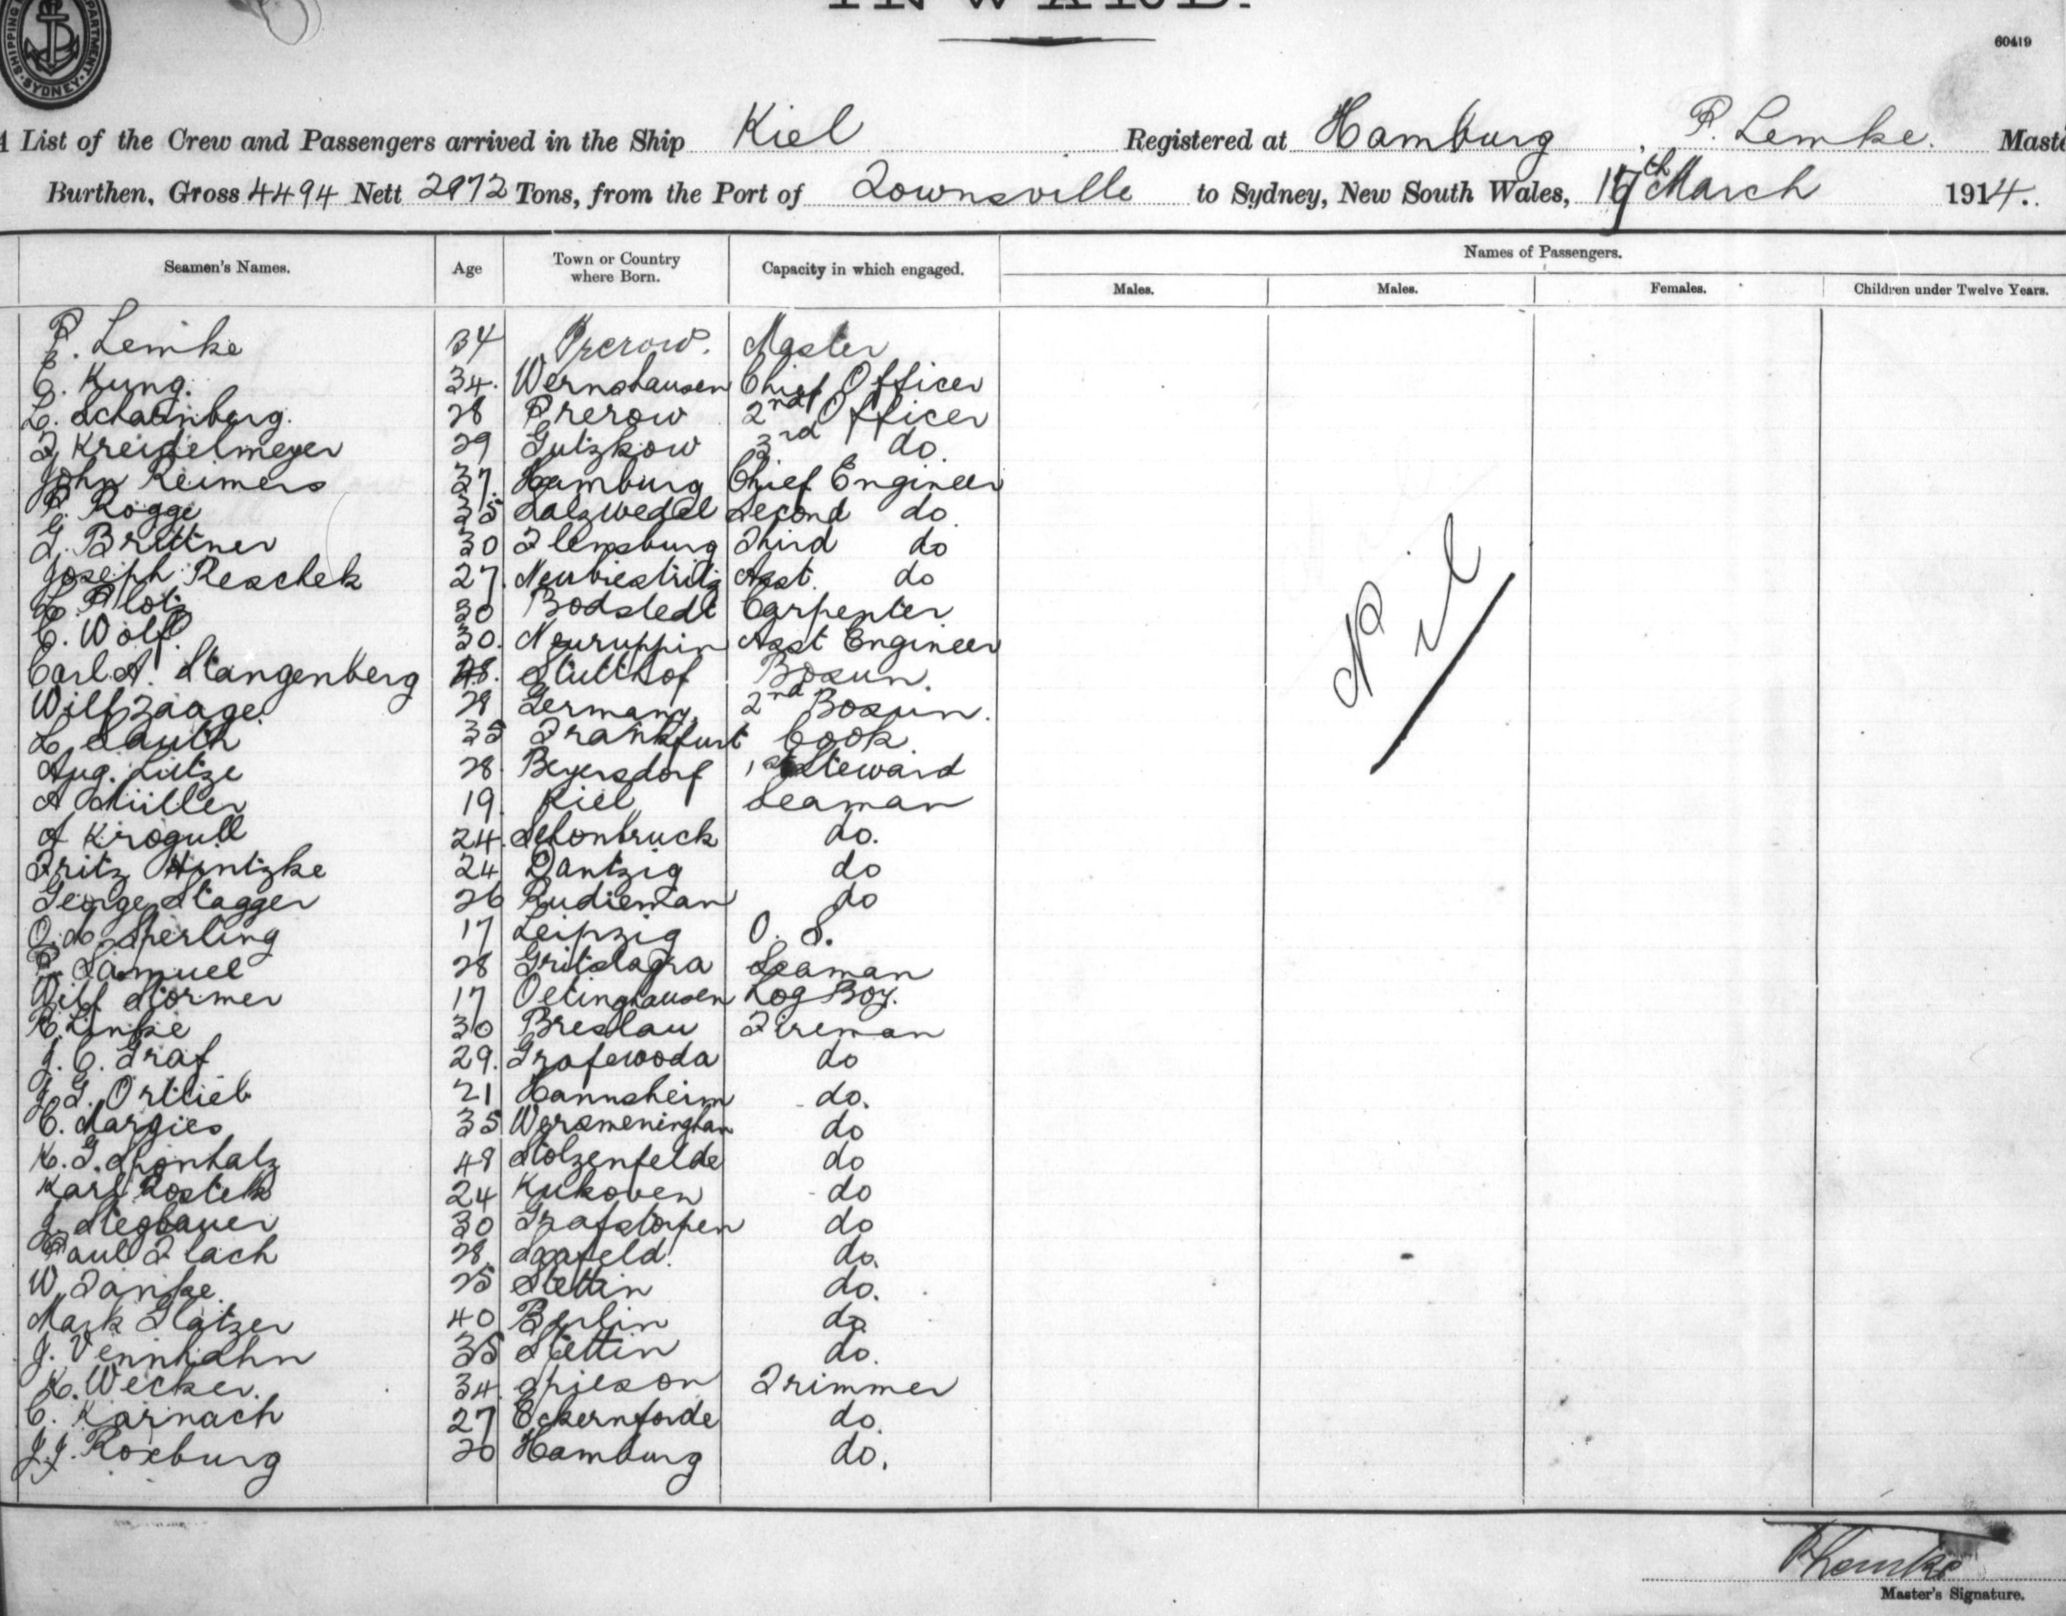 INWARD.
SHIPPING DEPARTMENT SYDNEY
60419
A List of the Crew and Passengers arrived in the Ship Kiel Registered at Hamburg, P. Lemke. Maste
Burthen, Gross 4494 Nett 2972 Tons, from the Port of Townsville to Sydney, New South Wales, 17th March 1914.
Seamen's Names. Age Town or Country where Born. Capacity in which engaged. Names of Passengers.
Males. Males. Females. Children under Twelve Years.
P. Lemke 34 Prerow. Master
C. Kung. 34. Wernshausen Chief Officer
L. Scharnberg. 28 Prerow 2nd Officer
F Kreidelmeyer 29 Gutzkow 3rd do.
John Reimers 37 Hamburg Chief Engineer
P. Rogge 35 Salzwedel Second do.
G. Brittner 30 Flensburg Third do
Joseph Reschek 27. Neubiestritz Asst. do
L. Plotz 30 Bodstedt Carpenter
C. Wolf. 30. Neuruppin Asst Engineer
Carl A. Stangenberg 48. Stutthof Bosun.
Will Zaage. 28 Germany. 2nd Bosun.
L. Lauth 35 Frankfurt Cook.
Aug. Lutze 28. Beyersdorf 1st Steward
A Müller 19. Kiel Seaman
A Krogull 24. Schonbruck do.
Fritz Hintzke 24 Dantzig do
George Stagger 26 Rudieman do
O. Sperling 17 Leipzig O. S.
P. Samuel 28 Seaman
Will Stormer 17 Oetinghausen Log Boy.
R. Linke 30 Breslau Fireman
J. C. Graf 29. Grafewoda do
J. G. Ortlieb 21 Hannsheim do.
C. Margies 35 Wersmeninghan do
K. G. Sponhalz 48 Stolzenfelde do
Karl Rostek 24 Kukoven do
J. Stegbauer 30 Grafstorpen do
Paul Flach 28 Saafeld. do.
W. Janke. 25 Stettin do.
Mark Glatzer 40 Berlin do.
J. Vennhahn 35 Stettin do.
K. Wecker. 34. Spieson Trimmer
C. Karnach 27 Eckernforde do.
J. J. Roxburg 20 Hamburg do.
Nil
P Lemke
Master's Signature.